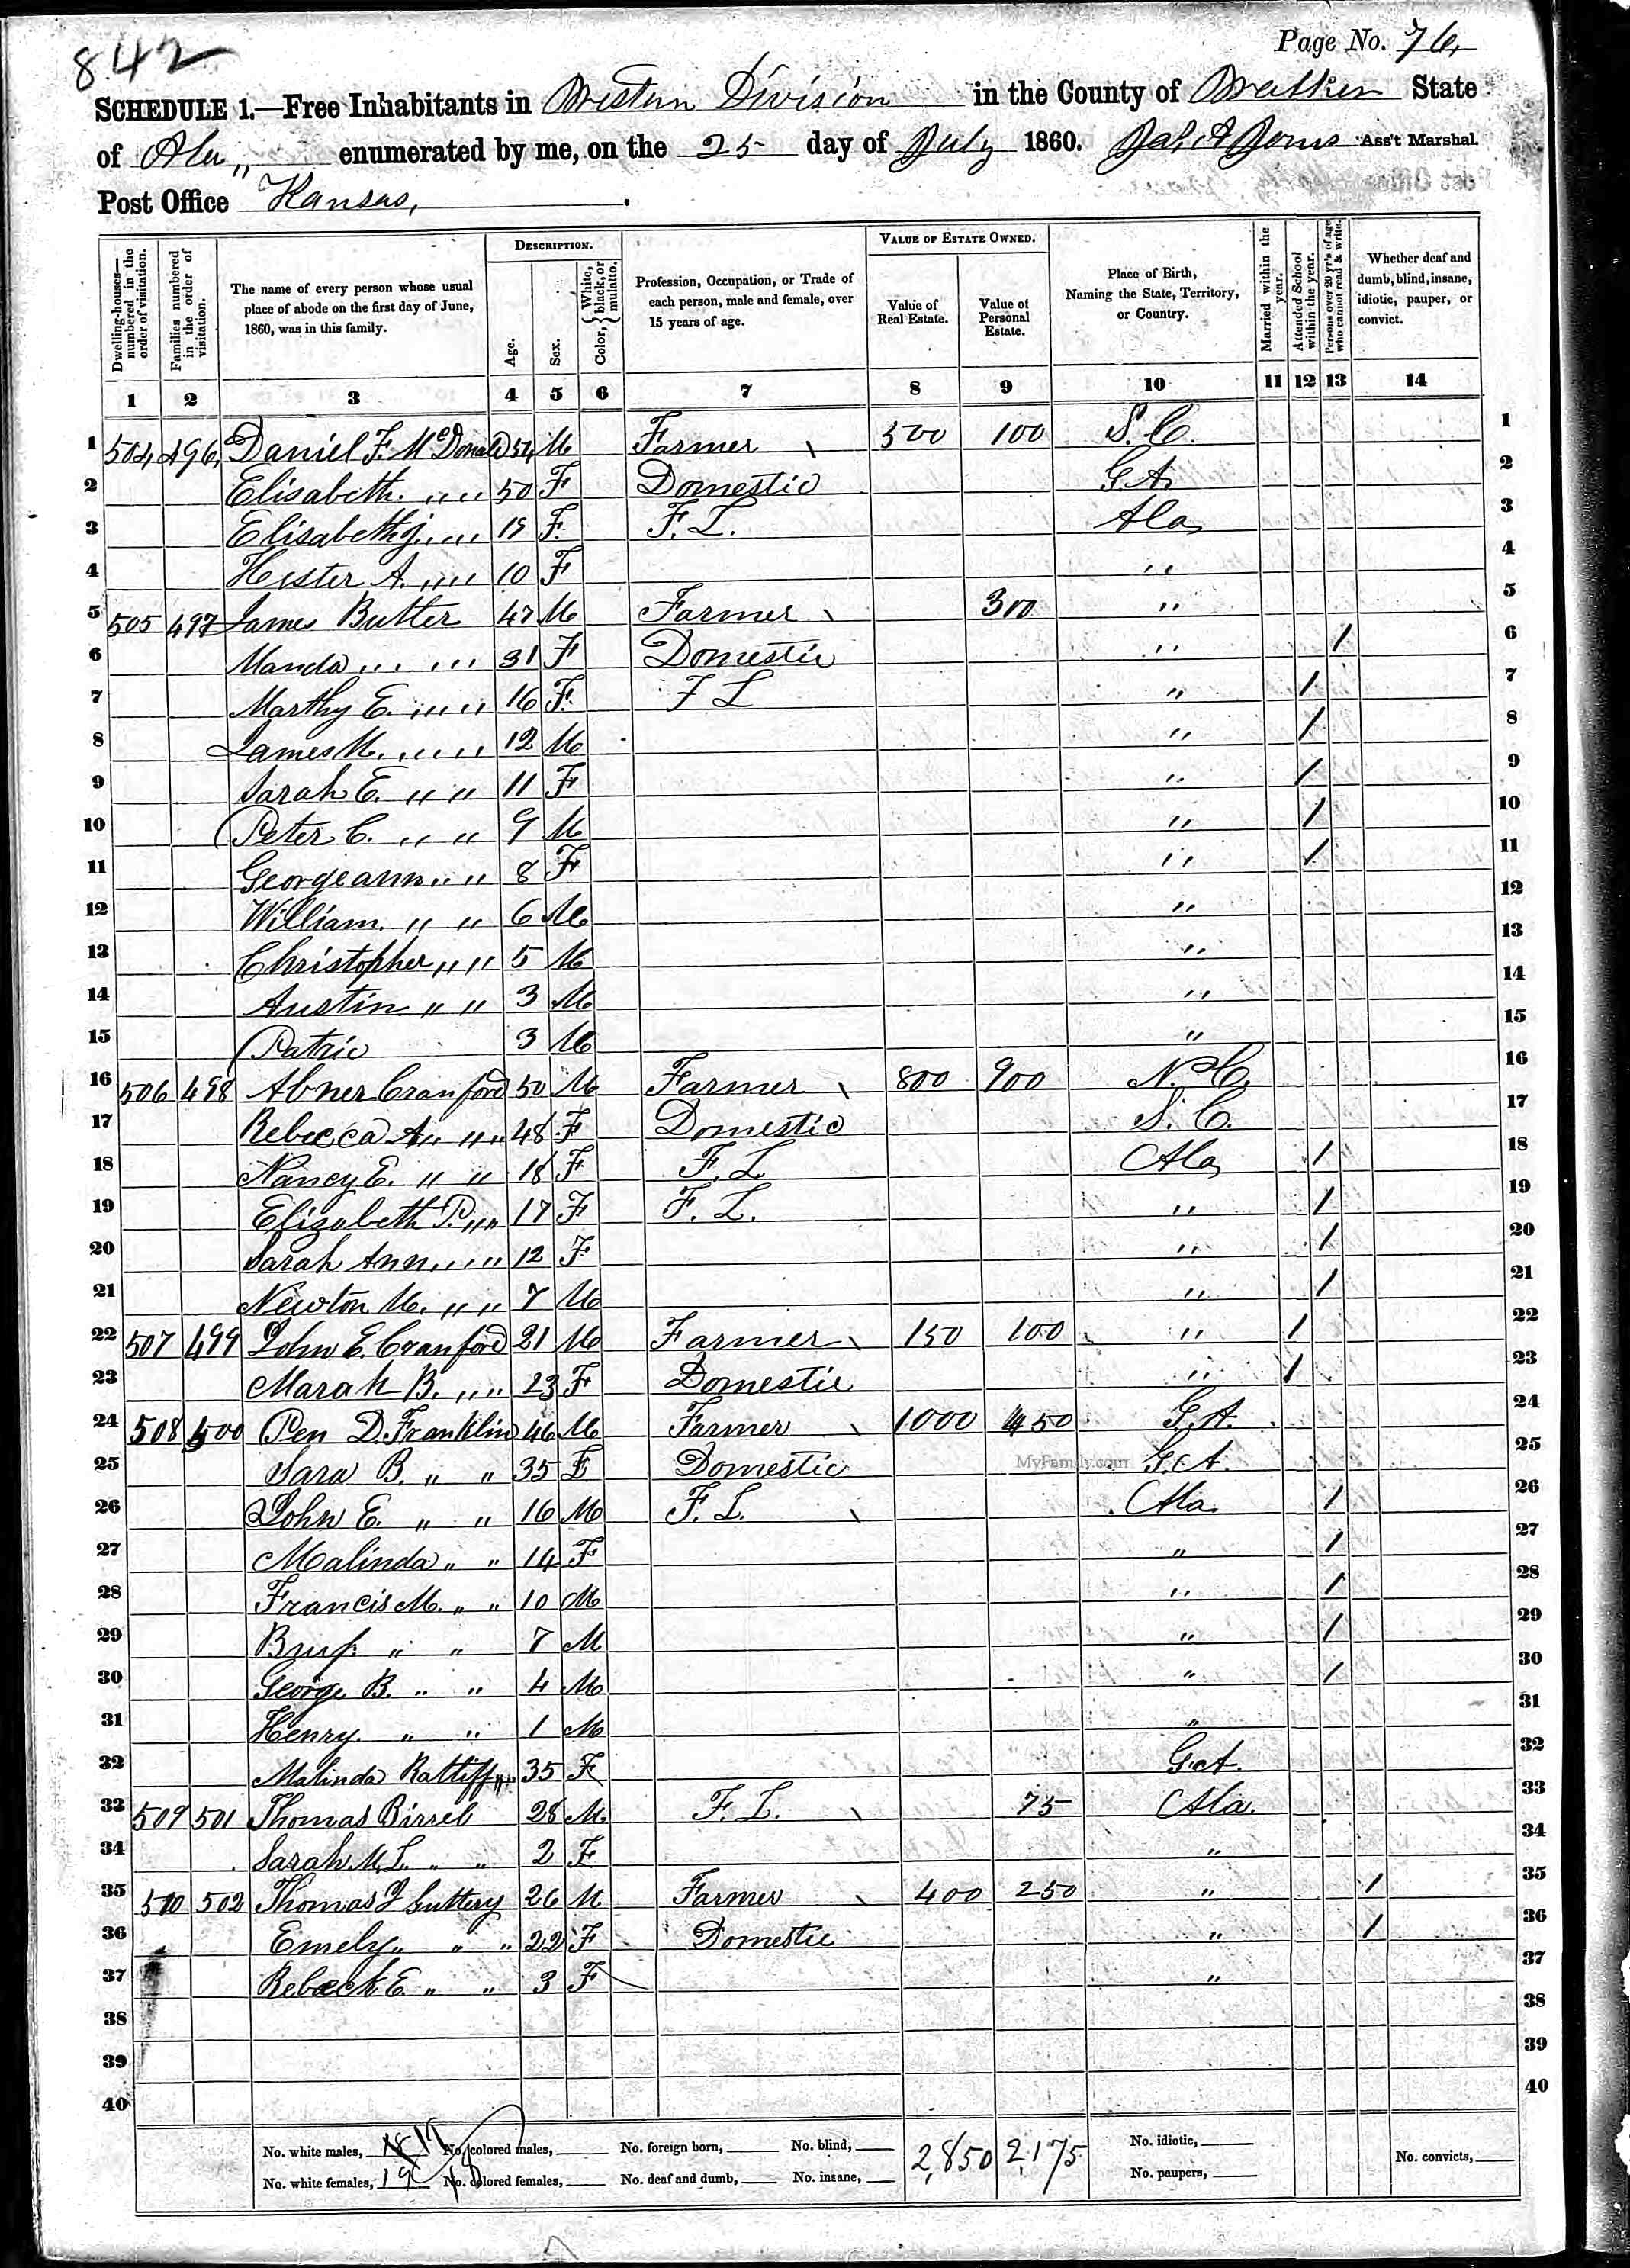 842
Page No. 76
SCHEDULE 1.—Free Inhabitants in Western Division in the County of Walker State
of Ala,, enumerated by me, on the 25 day of July 1860. Ass't Marshal.
Post Office Kansas,
Dwelling-houses—numbered in the order of visitation.
Families numbered in the order of visitation.
The name of every person whose usual place of abode on the first day of June, 1860, was in this family.
DESCRIPTION.
Age.
Sex.
Color, { White, black, or mulatto.
Profession, Occupation, or Trade of each person, male and female, over 15 years of age.
VALUE OF ESTATE OWNED.
Value of Real Estate.
Value of Personal Estate.
Place of Birth, Naming the State, Territory, or Country.
Married within the year.
Attended School within the year.
Persons over 20 yr's of age who cannot read & write.
Whether deaf and dumb, blind, insane, idiotic, pauper, or convict.
1 2 3 4 5 6 7 8 9 10 11 12 13 14
1 504 496 Daniel F. McDonald 54 M Farmer \ 500 100 S.C. 1
2 Elisabeth. ,, ,, 50 F Domestic GA. 2
3 Elisabeth J. ,, ,, 18 F. F. L. Ala, 3
4 Hester A. ,, ,, 10 F ,, 4
5 505 497 James Butler 47 M Farmer \ 300 ,, 5
6 Manda ,, ,, 31 F Domestic ,, / 6
7 Marthy E. ,, ,, 16 F. F L ,, / 7
8 James M. ,, ,, 12 M ,, / 8
9 Sarah E. ,, ,, 11 F ,, / 9
10 Peter C. ,, ,, 9 M ,, / 10
11 Georgeann ,, ,, 8 F ,, / 11
12 William. ,, ,, 6 M ,, 12
13 Christopher ,, ,, 5 M ,, 13
14 Austin ,, ,, 3 M ,, 14
15 Patric 3 M ,, 15
16 506 498 Abner Cranford 50 M Farmer \ 800 900 N.C. 16
17 Rebecca A ,, ,, 48 F Domestic S.C. 17
18 Nancy E. ,, ,, 18 F F. L. Ala, / 18
19 Elizabeth P. ,, ,, 17 F F. L. ,, / 19
20 Sarah Ann ,, ,, 12 F ,, / 20
21 Newton M. ,, ,, 7 M ,, / 21
22 507 499 John E. Cranford 21 M Farmer \ 150 100 ,, / 22
23 Marah B. ,, ,, 23 F Domestic ,, / 23
24 508 500 Pen D. Franklin 46 M Farmer \ 1000 450 G.A. 24
25 Sara B. ,, ,, 35 F Domestic MyFamily.com G.A. 25
26 John E. ,, ,, 16 M F. L. \ Ala. / 26
27 Malinda ,, ,, 14 F ,, / 27
28 Francis M. ,, ,, 10 M ,, / 28
29 ,, ,, 7 M ,, / 29
30 George B. ,, ,, 4 M ,, / 30
31 Henry. ,, ,, 1 M ,, 31
32 Malinda Ratliff 35 F G.A. 32
33 509 501 Thomas 28 M. F. L. \ 75 Ala. 33
34 Sarah. M. L. ,, ,, 2 F ,, 34
35 510 502 Thomas J Guttery 26 M Farmer \ 400 250 ,, / 35
36 Emely ,, ,, 22 F Domestic ,, / 36
37 Rebeck E ,, ,, 3 F ,, 37
38 38
39 39
40 40
No. white males, 18 19 No. colored males, No. foreign born, No. blind, 2,850 2,175 No. idiotic,
No. white females, 19 18 No. colored females, No. deaf and dumb, No. insane, No. paupers, No. convicts,